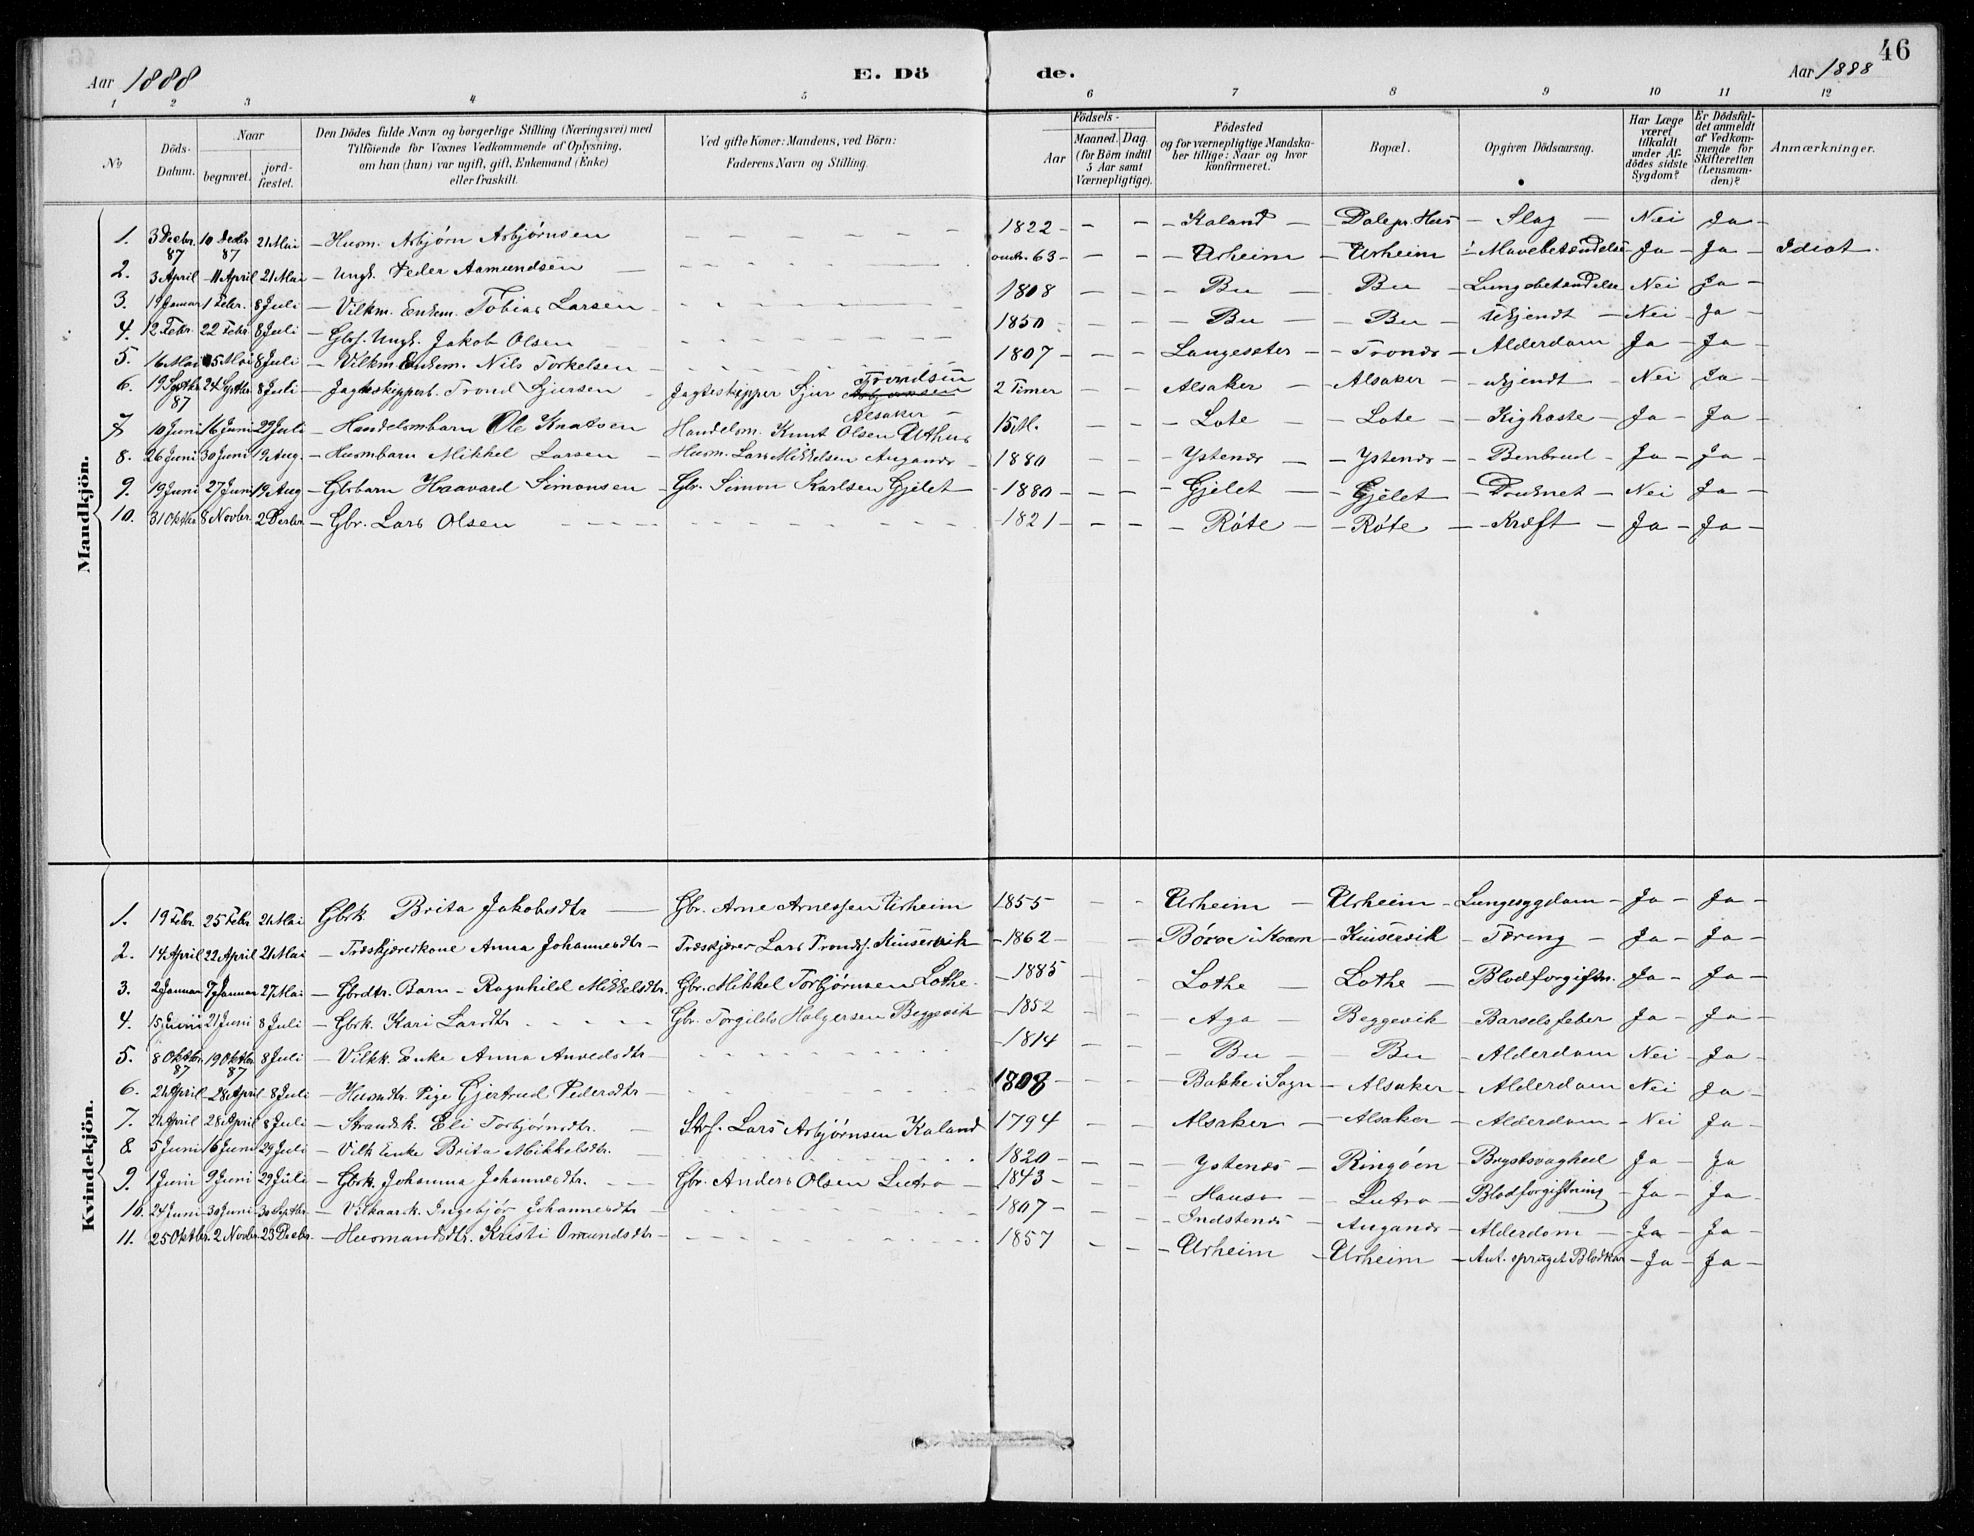 46
Aar 1888 E. Dö de. Aar 1888
1 2 3 4 5 6 7 8 9 10 11 12
No Döds-Datum. Naar begravet. jordfæstet. Den Dödes fulde Navn og borgerlige Stilling (Næringsvei) med Tilföiende for Voxnes Vedkommende af Oplysning, om han (hun) var ugift, gift, Enkemand (Enke) eller fraskilt. Ved gifte Koner: Mandens, ved Börn: Faderens Navn og Stilling. Födsels- Aar Maaned. Dag. (for Börn indtil 5 Aar samt Værnepligtige). Födested og for værnepligtige Mandskaber tillige: Naar og hvor konfirmeret. Bopæl. Opgiven Dödsaarsag. Har Læge været tilkaldt under Afdödes sidste Sygdom? Er Dödsfaldet anmeldt af Vedkommende for Skifteretten (Lensmanden)? Anmærkninger.
Mandkjön.
1. 3 Decbr. 87 10 Decbr 87 21 Mai – Husm. Asbjørn Asbjørnsen – – – 1822 – – – Kaland – Dale pr. Hus – Slag – Nei – Ja –
2. 3 April – 11 April 21 Mai – Ungk. Peder Aamundsen – – – 63 – – Urheim – Urheim – Mavebetændelse – Ja – Ja – Idiot.
3. 19 Januar 1 Febr. 8 Juli – Vilkm. Enkem. Tobias Larsen – – – 1808 – – – Bu – Bu – Lungebetændelse Nei Ja –
4. 12 Febr. 22 Febr. 8 Juli – Gbrs. Ungk. Jakob Olsen – – – 1850 – – – Bu – Bu – Ukjendt – Nei – Ja –
5. 16 Mai 25 Mai 8 Juli – Vilkm Enkem. Nils Torkelsen – – – 1807 – – – Langeseter – Tronæs – Alderdom Ja – Ja –
6. 19 Septbr 87 24 Septbr 8 Juli – Jagteskipperb. Trond Sjursen – Jagteskipper Sjur Trondsen Alsaker – 2 Timer – – Alsaker – Alsaker – ukjendt – Nei Ja –
7 10 Juni 16 Juni 29 Juli – Handelsmbarn Ole Knutsen Handelsm. Knut Olsen Uthus 15 M. – – – Lote – Lote – Kighoste – Ja – Ja –
8. 26 Juni 30 Juni 19 Aug. – Husmbarn Mikkel Larsen – Husm. Lars Mikkelsen Auganæs – 1880 – – – Ystenæs – Ystenæs – Benbrud – Ja – Ja –
9. 19 Juni 27 Juni 19 Aug – Gbrbarn Haavard Simonsen – Gbr. Simon Karlsen Gjelet – 1880 – – – Gjelet – Gjelet – Druknet – Nei Ja –
10. 31 Oktbr 8 Novbr. 2 Decbr. – Gbr. Lars Olsen – – – 1821 – – – Røte – Røte – Kræft – Ja – Ja –
Kvindekjön.
1. 19 Febr. 25 Febr. 21 Mai Gbrk Brita Jakobsdtr – Gbr. Arne Arnessen Urheim 1855 – – – Urheim – Urheim – Lungesygdom – Ja – Ja –
2. 14 April 22 April 21 Mai – Træskjærerkone Anna Johannesdtr – Træskjærer Lars Tronds. Kinservik – 1862 – – Børve i Kvam – Kinservik – Tæring – Ja – Ja –
3. 2 Januar 7 Januar 27 Mai – Gbrdtr. Barn – Ragnhild Mikkelsdtr. Gbr. Mikkel Torbjørnsen Lothe. – 1885 – – Lothe – Lothe – Blodforgiftn. Ja – Ja –
4. 15 Juni 21 Juni 8 Juli – Gbrk. Kari Larsdtr – – Gbr. Torgils Holgersen Beggevik – 1852 – – – Aga – Beggevik – Barselsfeber Ja – Ja –
5. 8 Oktbr. 87 19 Oktbr. 87 8 Juli – Vilkk. Enke Anna Amundsdtr – – – 1814 – – – Bu – Bu – Alderdom Nei – Ja –
6. 21 April – 28 April – 8 Juli – Husmdtr Pige Gjertrud Pedersdtr – – – 1808 – – – Bakke i Sogn – Alsaker – Alderdom Nei Ja –
7. 21 April 28 April 8 Juli – Strandsk. Eli Torbjørnsdtr. – Strs. Lars Asbjørnsen Kaland 1794 – – – Alsaker – Alsaker – Alderdom – Nei Ja –
8 5 Juni 16 Juni 29 Juli – Vilk Enke Brita Mikkelsdtr. – – – 1820 – – – Ystenæs – Ringøen – Brystsvaghed Ja – Ja
9. 1 Juni 9 Juni 29 Juli – Gbrk. Johanna Johannesdtr. – – Gbr. Anders Olsen Lutro – 1843 – – – Hauso – Lutro – Blodforgiftning – Ja – Ja –
10. 24 Juni 30 Juni 30 Septbr. – Vilkaark. Ingebjør Johannesdtr – – – 1807 – – – Indstenæs – Auganæs – Alderdom – Ja – Ja –
11. 25 Oktbr. 2 Novbr. 23 Decbr. – Husmandsdtr. Kristi Omundsdtr – – – 1857 – – – Urheim – Urheim – Ant. sprunget Blodkar – Ja – Ja –